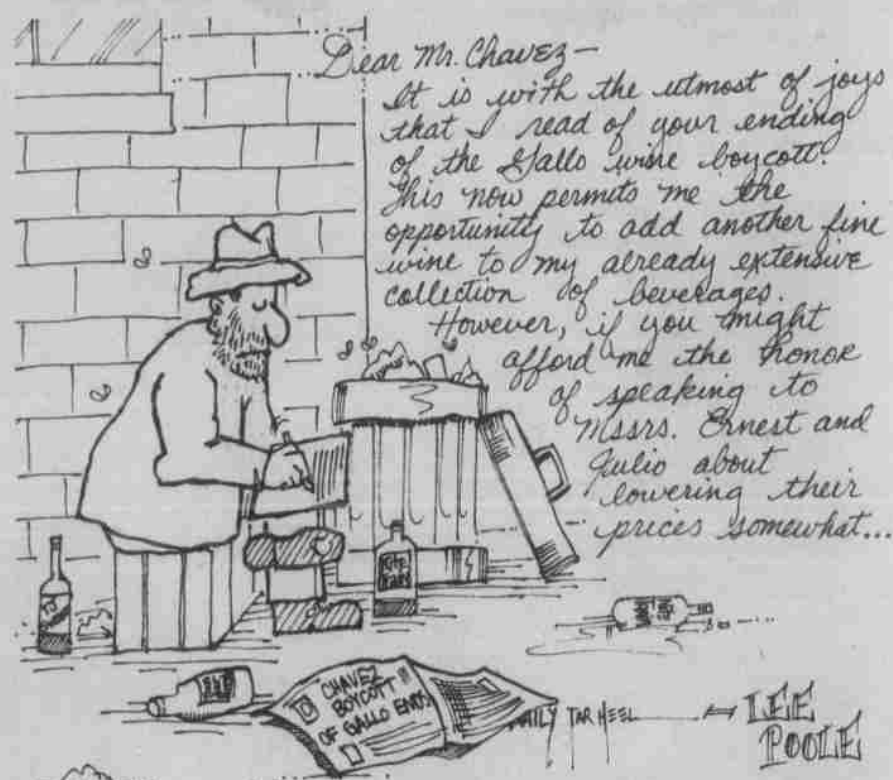 Dear Mr. Chavez—
It is with the utmost of joys
that I read of your ending
of the Gallo wine boycott.
This now permits me the
opportunity to add another fine
wine to my already extensive
collection of beverages.
However, if you might
afford me the honor
of speaking to
Mssrs. Ernest and
Julio about
lowering their
prices somewhat...
CHAVEZ
BOYCOTT
OF GALLO ENDS
DAILY TAR HEEL
LEE
POOLE